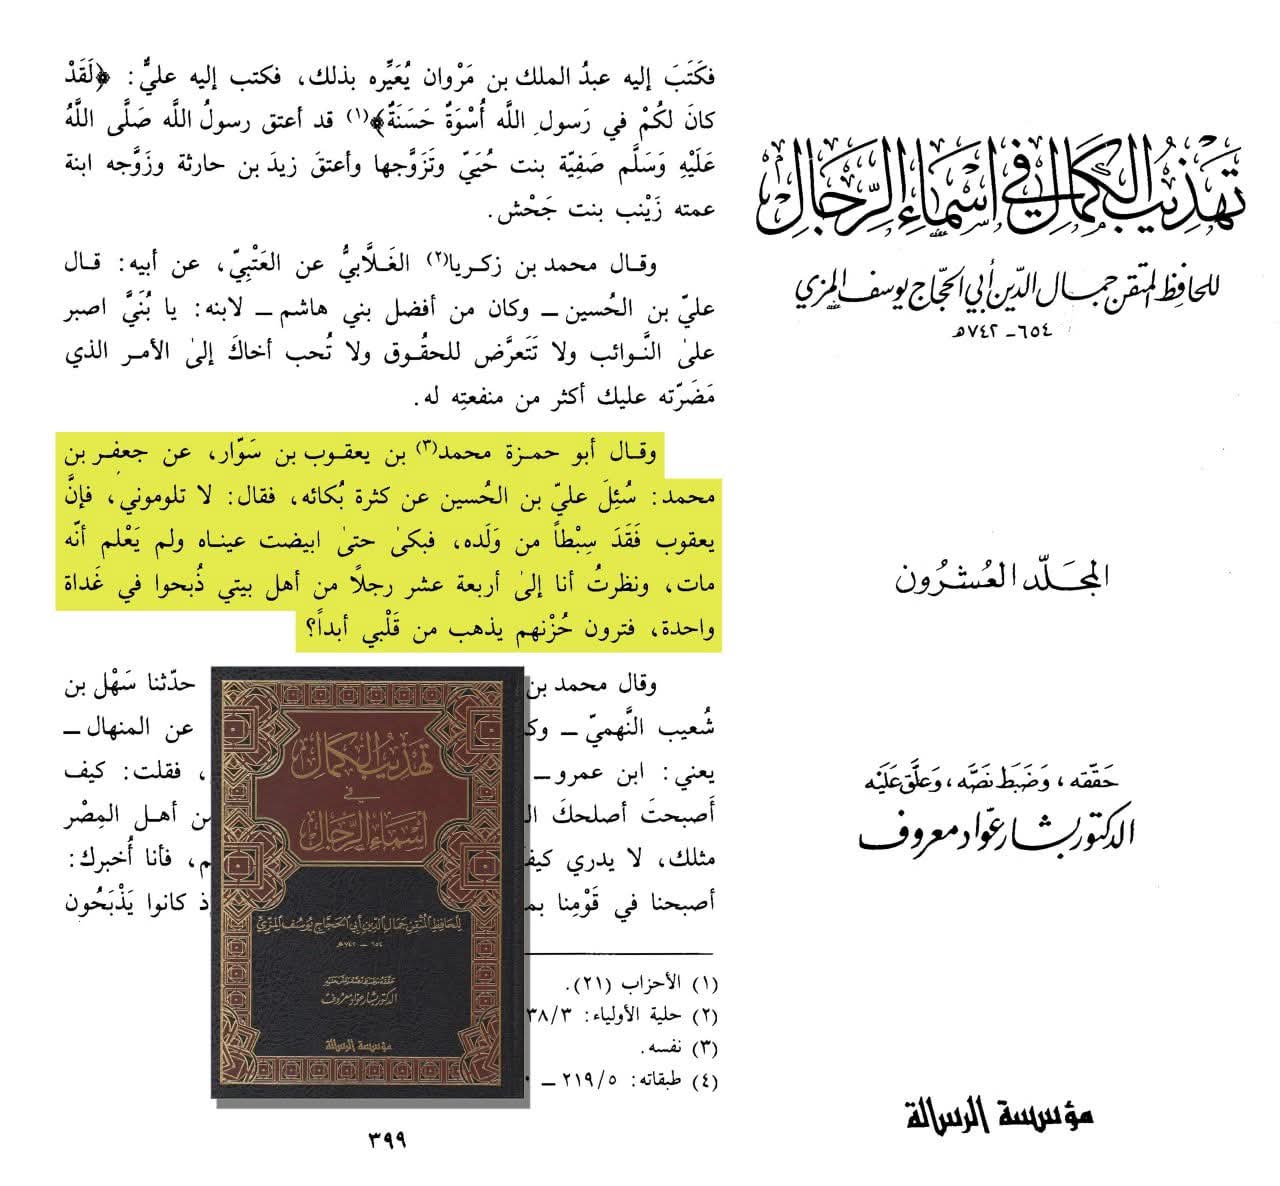 تهذيب الكمال في أسماء الرجال
للحافظ المتقن جمال الدين أبي الحجاج يوسف المزي
٦٥٤ - ٧٤٢ هـ
المجلد العشرون
حققه، وضبط نصه، وعلق عليه
الدكتور بشار عواد معروف
مؤسسة الرسالة
فكَتَبَ إليه عبدُ الملك بن مَرْوان يُعَيِّره بذلك، فكتب إليه عليٌّ: ﴿لَقَدْ
كانَ لكُمْ في رَسولِ اللَّه أُسْوَةٌ حَسَنَةٌ﴾(١) قد أعتق رسولُ اللَّه صَلَّى اللَّهُ
عَلَيْهِ وَسَلَّم صَفِيّة بنت حُيَيّ وتَزَوَّجها وأعتقَ زيدَ بن حارثة وزَوَّجه ابنة
عمته زَيْنب بنت جَحْش.
وقال محمد بن زكريا(٢) الغَلَّابيُّ عن العَتْبيّ، عن أبيه: قال
عليّ بن الحُسين ــ وكان من أفضل بني هاشم ــ لابنه: يا بُنَيَّ اصبر
علىٰ النَّوائب ولا تَتَعرَّض للحقُوق ولا تُحب أخاكَ إلىٰ الأمر الذي
مَضَرّته عليك أكثر من منفعتِه له.
وقال أبو حمزة محمد(٣) بن يعقوب بن سَوّار، عن جعفر بن
محمد: سُئِلَ عليّ بن الحُسين عن كثرة بُكائه، فقال: لا تلوموني، فإنَّ
يعقوب فَقَدَ سِبْطاً من وَلَده، فبكىٰ حتىٰ ابيضت عيناه ولم يَعْلم أنّه
مات، ونظرتُ أنا إلىٰ أربعة عشر رجلاً من أهل بيتي ذُبحوا في غَداة
واحدة، فترون حُزْنهم يذهب من قَلْبي أبداً؟
وقال محمد بن حدّثنا سَهْل بن
شُعيب النَّهميّ ــ عن المنهال ــ
يعني: ابن عمرو ــ ، فقلت: كيف
أَصبحتَ أصلحكَ أهل المِصْر
مثلك، لا يدري ، فأنا أُخبرك:
أصبحنا في قَوْمِنا كانوا يَذْبَحُون
(١) الأحزاب (٢١).
(٢) حلية الأولياء: ٣/
(٣) نفسه.
(٤) طبقاته: ٥/ ٢١٩ ــ
٣٩٩
تهذيب الكمال
في
أسماء الرجال
للحافظ المتقن جمال الدين أبي الحجاج يوسف المزي
٦٥٤ - ٧٤٢ هـ
الدكتور بشار عواد معروف
مؤسسة الرسالة